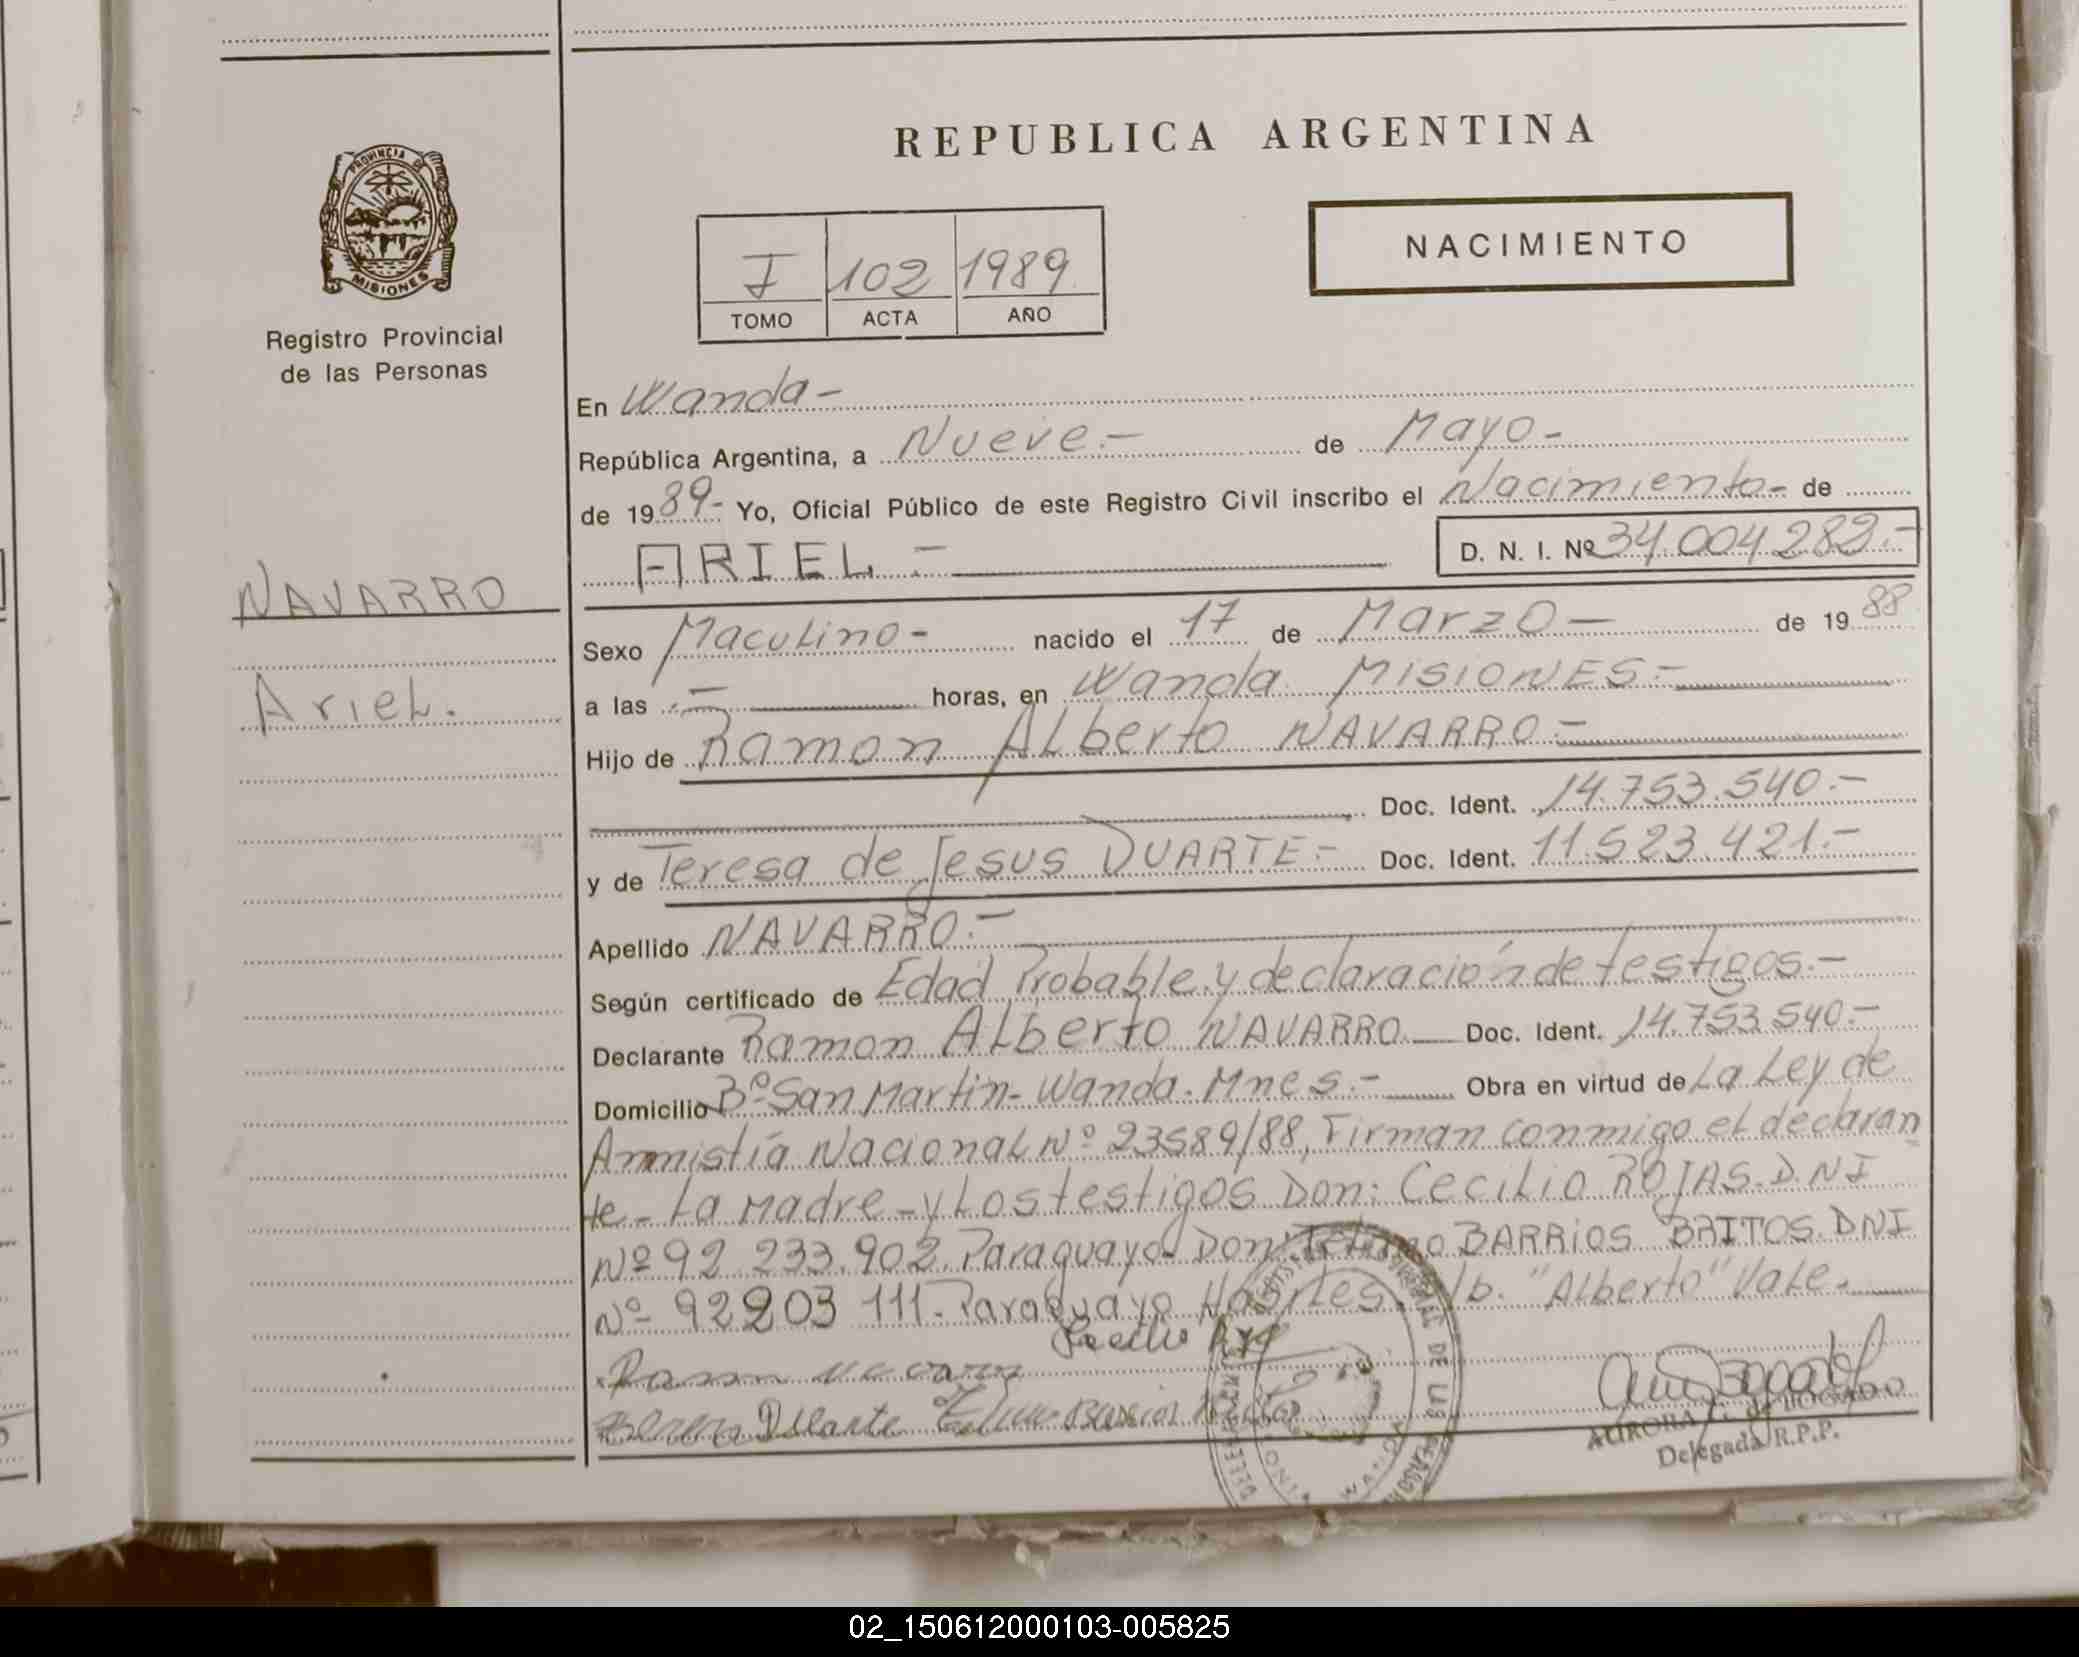 REPUBLICA ARGENTINA
PROVINCIA DE
MISIONES
Registro Provincial
de las Personas
NACIMIENTO
I 102 1989
TOMO ACTA AÑO
En Wanda-
República Argentina, a Nueve.- de Mayo-
de 1989- Yo, Oficial Público de este Registro Civil inscribo el Nacimiento- de
ARIEL.- D. N. I. Nº 34.004.282.-
NAVARRO
Ariel.
Sexo Maculino- nacido el 17 de Marzo- de 1988
a las - horas, en Wanda MISIONES-
Hijo de Ramon Alberto NAVARRO-
Doc. Ident. 14.753.540.-
y de Teresa de Jesus DUARTE- Doc. Ident. 11.523.421.-
Apellido NAVARRO.-
Según certificado de Edad Probable y declaración de testigos.-
Declarante Ramon Alberto NAVARRO Doc. Ident. 14.753.540.-
Domicilio Bº San Martin- Wanda. Mnes.- Obra en virtud de La Ley de
Amnistía Nacional Nº 23589/88, Firman conmigo el declaran
te- La Madre- y Los testigos Don: Cecilio ROJAS. D.N.I
Nº 92 233.902. Paraguayo- Don BARRIOS BRITOS. DNI
Nº 92203 111. Paraguayo "Alberto" Vale.
Duarte
Delegada R.P.P.
02_150612000103-005825